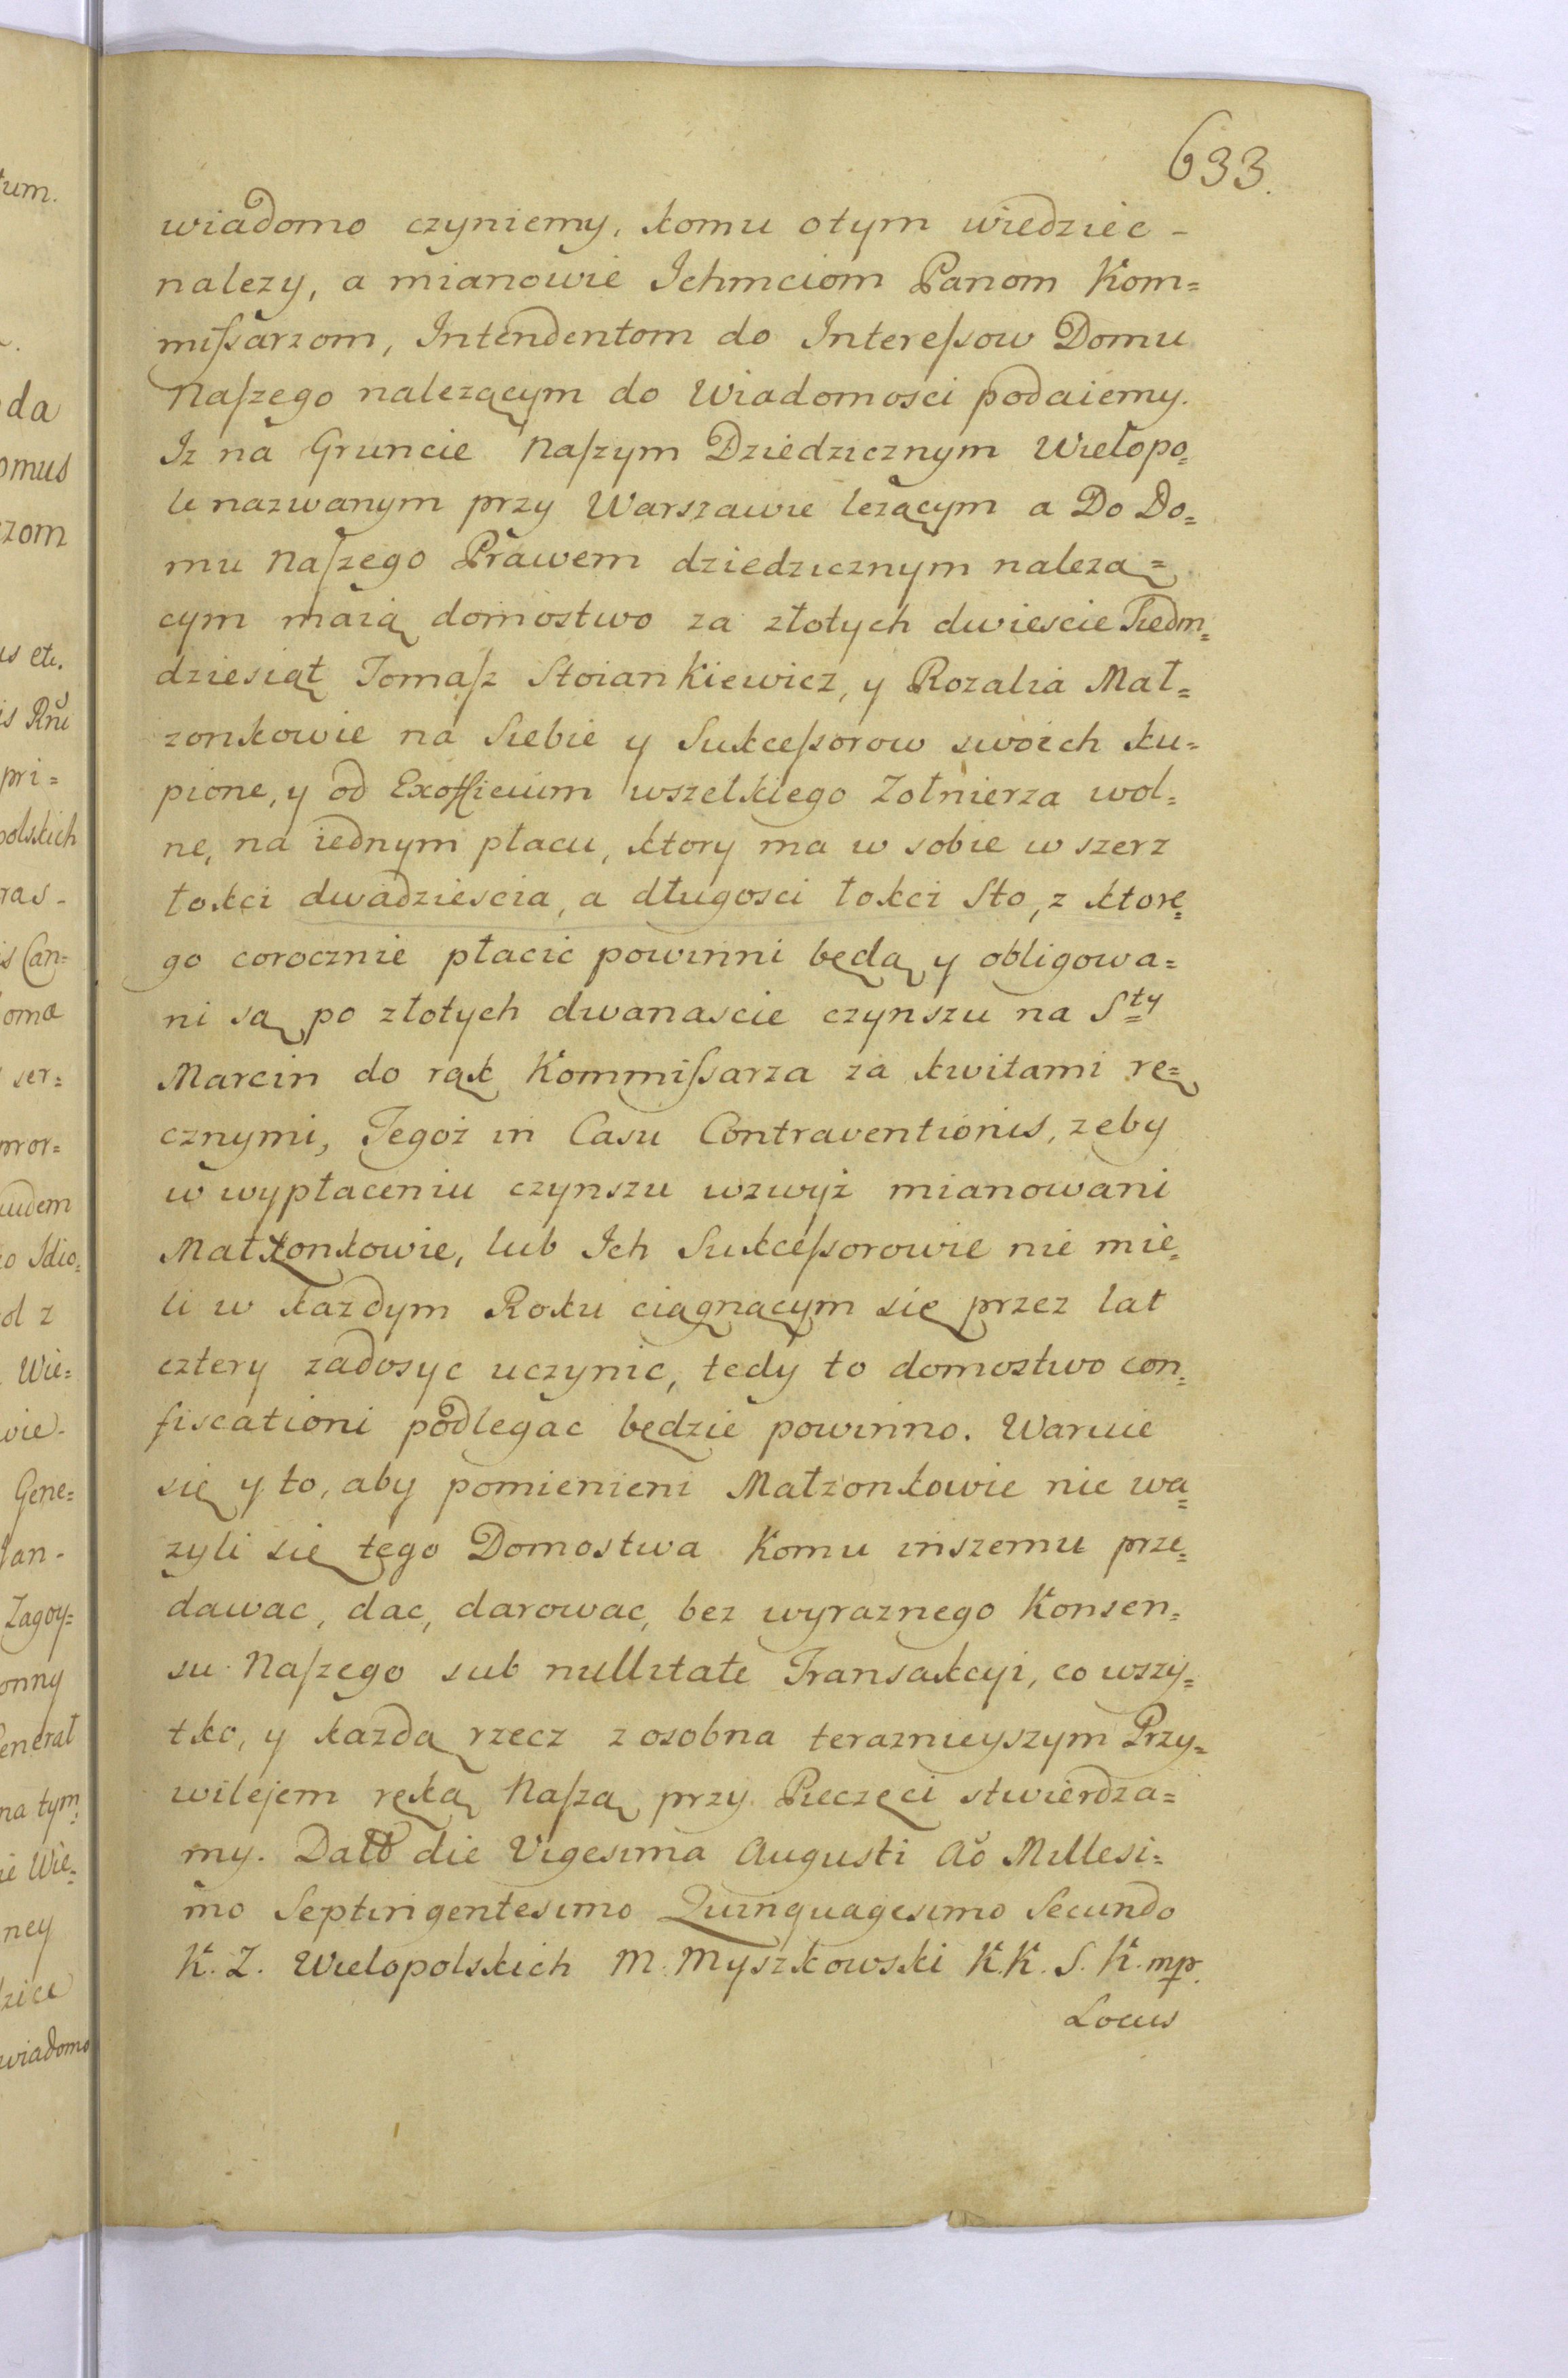 633.
wiadomo czyniemy, komu otym wiedziec -
nalezy, a mianowie Ichmciom Panom Kom=
missarzom, Intendentom do Interessow Domu
Naszego nalezącym do Wiadomosci podaiemy.
Iz na Gruncie Naszym Dziedzicznym Wielopo=
le nazwanym przy Warszawie lezącym a Do Do=
mu Naszego Prawem dziedzicznym nalezą=
cym maią domostwo za złotych dwiescie Siedm=
dziesiąt Tomasz Stoiankiewicz, y Rozalia Mał=
zonkowie na Siebie y Sukcessorow swoich ku=
pione, y od Exofficium wszelkiego Zołnierza wol=
ne, na iednym placu, ktory ma w sobie w szerz
łokci dwadziescia, a długosci łokci Sto, z ktore=
go corocznie płacic powinni będą y obligowa=
ni są po złotych dwanascie czynszu na S=ty
Marcin do rąk Kommissarza za kwitami rę=
cznymi, Tegoż in Casu Contraventionis, zeby
w wypłaceniu czynszu wzwyż mianowani
Małżonkowie, lub Ich Sukcessorowie nie mie=
li w kazdym Roku ciągnącym się przez lat
cztery zadosyc uczynic, tedy to domostwo con=
fiscationi podlegac będzie powinno. Waruie
się y to, aby pomienieni Małzonkowie nie wa=
zyli się tego Domostwa Komu inszemu prze=
dawac, dac, darowac, bez wyraznego Konsen=
su Naszego sub nullitate Transakcyi, co wszy=
tko, y kazdą rzecz z osobna teraznieyszym Przy=
wilejem ręką Naszą przy Pieczęci stwierdza=
my. Datt die Vigesima Augusti Aõ Millesi=
mo Septingentesimo Quinquagesimo Secundo
K. Z. Wielopolskich M. Myszkowski K.K. S. K. mp.
Locus